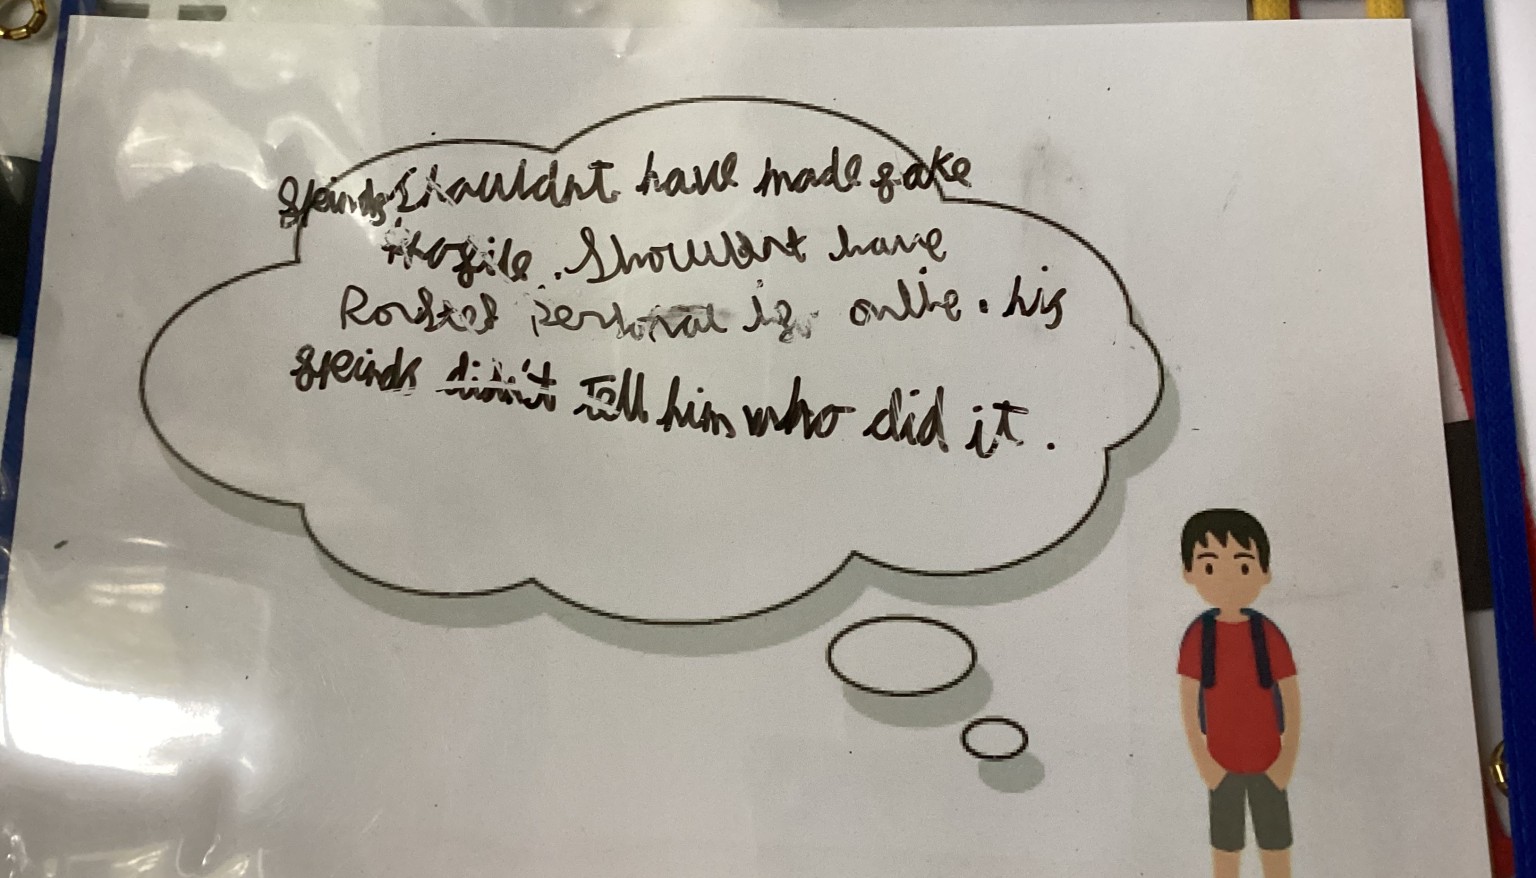 freinds shouldn't have made fake
profile. Shouldnt have
Posted personal is online. his
freinds didn't Tell him who did it.